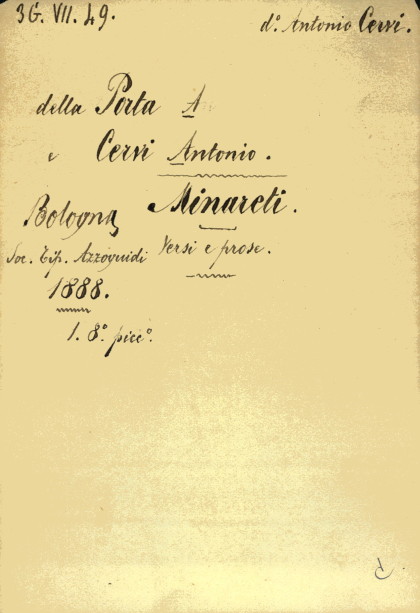 36. VII. 49.
d.º Antonio Cervi.
della Porta A
e Cervi Antonio.
Minareti.
Bologna
Versi e prose.
Soc. Tip. Azzoguidi
1888.
1. 8º. picc.º